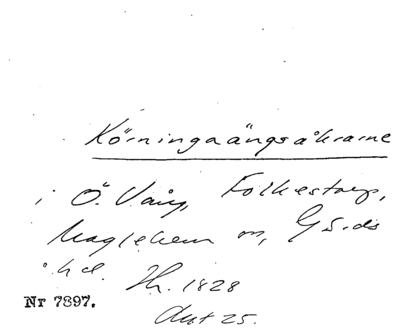 Körningaängsåkrarne
i Ö. Vång, Folkestorp,
Maglehem sn, Gärds
hd. Hr. 1828
Nr 7897.
Akt 25.